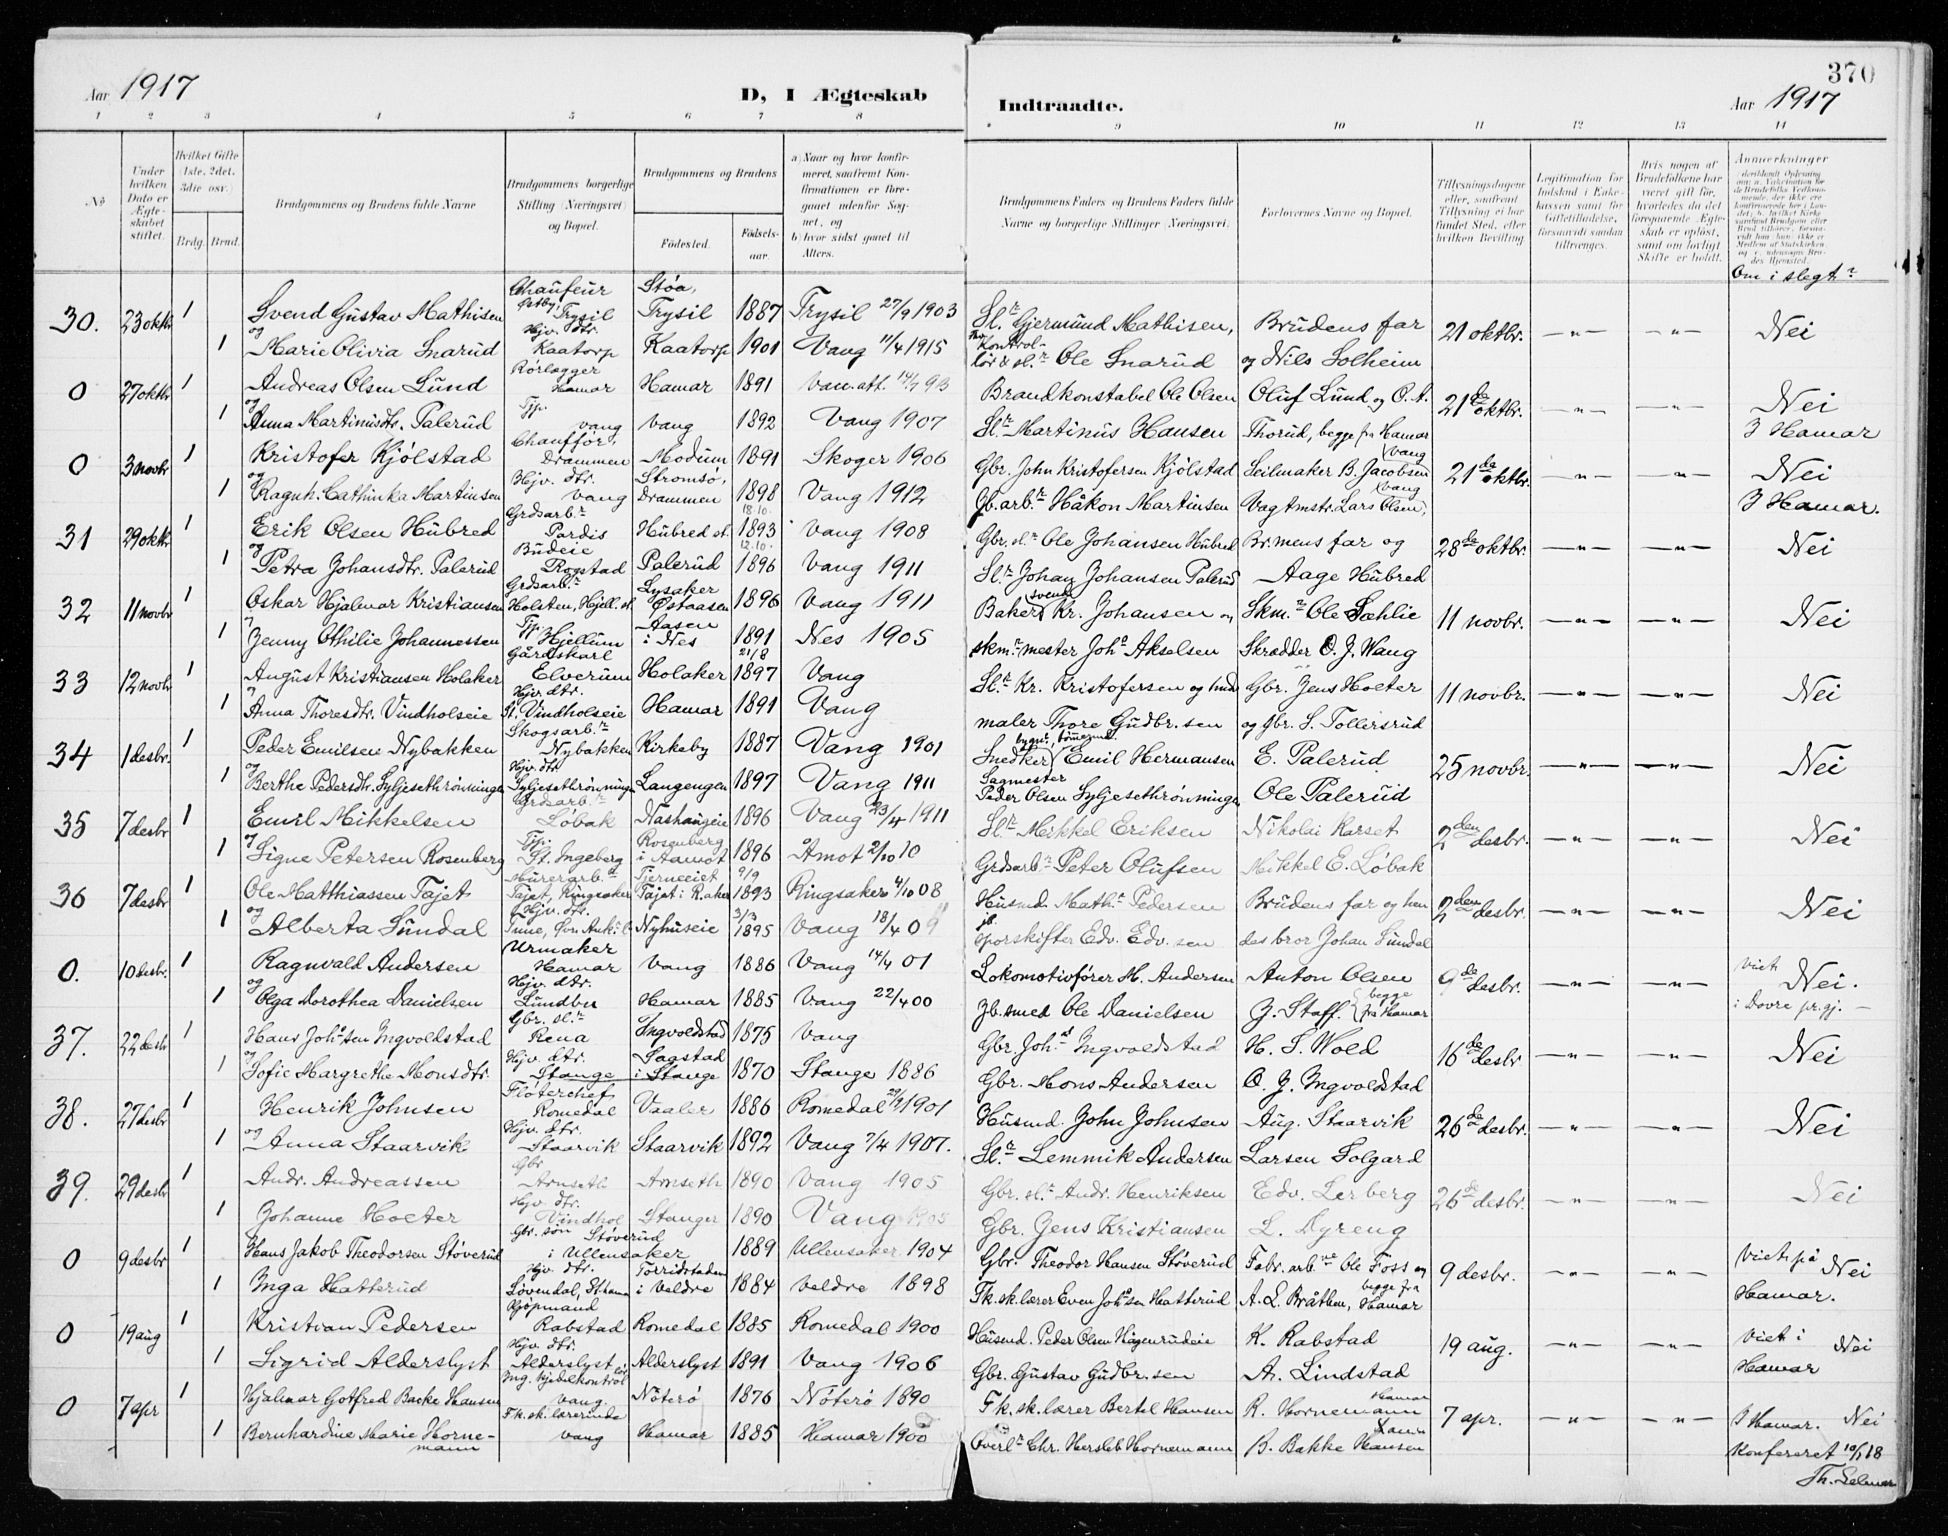 370
Aar 1917
D, I Ægteskab
Indtraadte.
Aar 1917
1 2 3 4 5 6 7 8 9 10 11 12 13 14
No
Under hvilken Dato er Ægteskabet stiftet.
Hvilket Gifte (1ste, 2det, 3die osv.)
Brdg. Brud.
Brudgommens og Brudens fulde Navne
Brudgommens borgerlige Stilling (Næringsvei) og Bopæl.
Brudgommens og Brudens
Fødested. Fødselsaar.
a) Naar og hvor konfirmeret, saafremt Konfirmationen er foregaaet udenfor Sognet, og
b) hvor sidst gaaet til Alters.
Brudgommens Faders og Brudens Faders fulde Navne og borgerlige Stillinger (Næringsvei).
Forlovernes Navne og Bopæl.
Tillysningsdagene eller, saafremt Tillysning ei har fundet Sted, efter hvilken Bevilling.
Legitimation for Indskud i Enkekassen samt for Giftetilladelse, forsaavidt saadan tiltrænges.
Hvis nogen af Brudefolkene har været gift før, hvorledes da det foregaaende Ægteskab er opløst, samt om lovligt Skifte er holdt.
Anmerkninger
Om i slegt
30. 23 oktbr 1 Svend Gustav Mathisen Chaufeur Østby, Trysil Støa, Trysil 1887 Trysil 27/9 1903 Sl. Gjermund Mathisen, Brudens far 21 oktbr. —"— —"— Nei
og 1 Marie Olivia Snarud Hjv. dtr. Kaatorp Kaatorp 1901 Vang 11/4 1915 Kontrollør & sl. Ole Snarud og Nils Solheim
0 27 oktbr 1 Andreas Olsen Lund Rørlægger Hamar Hamar 1891 Brandkonstabel Ole Olsen Oluf Lund og O. A. 21de oktbr. —"— —"— Nei
og 1 Anna Martinusdtr. Palerud Tjp. Vang Vang 1892 Vang 1907 Sl. Martinus Hansen Thorud, begge fr Hamar I Hamar
0 3 novbr 1 Kristofer Kjølstad Chauffør, Drammen Modum 1891 Skoger 1906 Gbr. John Kristofersen Kjølstad Seilmaker B. Jacobsen Vang 21de oktbr. —"— —"— Nei
og 1 Ragnh. Cathinka Martinsen Hjv. dtr. Vang Strømsø, Drammen 1898 Vang 1912 Jb. arb. Håkon Martinsen Vagtmstr. Lars Olsen, Vang I Hamar.
31 29 oktbr 1 Erik Olsen Hubred Grdsarb. Pardis Hubred st. 18.10. 1893 Vang 1908 Gbr. sl. Ole Johansen Hubred Br.mens far og 28de oktbr. —"— —"— Nei
og 1 Petra Johansdtr. Palerud Budeie Rogstad Palerud 12.10. 1896 Vang 1911 Sl. Johan Johansen Palerud Aage Hubred
32 11 novbr 1 Oskar Hjalmar Kristiansen Grdsarb. Holsten, Hjell. st. Lysaker Østaasen 1896 Vang 1911 Bakersvend Kr. Johansen og Skm. Ole Sæhlie 11 novbr. —"— —"— Nei
1 Jenny Othilie Johannessen Tjp. Hjellum Aasen i Nes 1891 Nes 1905 skm. mester Joh. Akselsen Skrædder O. J. Wang
33 12 novbr 1 August Kristiansen Holaker Gårdskarl Elverum Holaker 21/8 1897 Vang Sl. Kr. Kristofersen og Gbr. Jens Hoeter 11 novbr. —"— —"— Nei
1 Anna Thoresdtr. Vindholseie Hjv. dtr. St. Vindholseie Hamar 1891 Vang maler Thore Gudbr.sen og Gbr. S. Tollersrud
34 1 desbr. 1 Peder Emilsen Nybakken Skogsarb. Nybakken Kirkeby 1887 Vang 1901 Snedker Emil Hermansen E. Palerud 25 novbr. —"— —"— Nei
og 1 Berthe Pedersdtr. Syljesethrønningen Hjv. dtr. Syljesethrønningen Langengen 1897 Vang 1911 Sagmester Peder Olsen Syljesethrønningen Ole Palerud
35 7 desbr 1 Emil Mikkelsen Grdsarb. Løbak Nashaugeie 1896 Vang 23/4 1911 Sl. Mikkel Eriksen Nikolai Karset 2den desbr. —"— —"— Nei
og 1 Signe Petersen Rosenberg Tjp. St. Ingeberg Rosenberg i Aamot 1896 Åmot 2/10 10 Grdsarb. Peter Olufsen Mikkel E. Løbak
36 7 desbr 1 Ole Matthiassen Tajet Murerarb. Tajet, Ringsaker Tjerneeiet Tajet i R.aker 9/9 1893 Ringsaker 4/10 08 Husmd. Math. Pedersen Brudens far og hendes 2den desbr. —"— —"— Nei
og 1 Alberta Sundal Hjv. dtr. Nyhuseie 3/3 1895 Vang 18/4 09 sporskifter Edv. Edv.sen bror Johan Sundal
0. 10 desbr. 1 Ragnvald Andersen Urmaker Hamar Vang 1886 Vang 14/4 01 Lokomotivfører H. Andersen Anton Olsen 9de desbr. —"— —"— Viet Nei.
og 1 Olga Dorothea Danielsen Hjv. dtr. Lundbu Hamar 1885 Vang 22/4 00 Jb. smed Ole Danielsen J. Staff. begge fra Hamar i Dovre pr.gj. —
37. 22 desbr 1 Hans Johsen Ingvoldstad Gbr. sl. Rena Ingvoldstad 1875 Vang Gbr. Joh. Ingvoldstad H. S. Wold 16de desbr —"— —"— Nei
og 1 Sofie Margrethe Monsdtr. Hjv. dtr. Stange Sagstad i Stange 1870 Stange 1886 Gbr. Mons Andersen O. J. Ingvoldstad
38. 27 desbr 1 Henrik Johnsen Fløterchef Romedal Vaaler 1886 Romedal 1901 Husmd. John Johnsen Aug. Staarvik 26de desbr. —"— —"— Nei
og 1 Anna Staarvik Hjv. dtr. Staarvik Staarvik 1892 Vang 7/4 1907. Sl. Lemmik Andersen Larsen Solgard
39. 29 desbr 1 Andr. Andreassen Gbr Arnseth Arnseth 1890 Vang 1905 Gbr. sl. Andr. Henriksen Edv. Lerberg 26de desbr. —"— —"— Nei
1 Johanne Hoeter Hjv. dtr. Vindhol Stanger 1890 Vang 1905 Gbr. Jens Kristiansen L. Dyreng
0 9 desbr. 1 Hans Jakob Theodorsen Støverud Gbr. søn Støverud i Ullensaker 1889 Ullensaker 1904 Gbr. Theodor Hansen Støverud Fabr. arb. Ole Foss og 9 desbr. —"— —"— Viet på Nei
1 Inga Hatterud Hjv. dtr. Løvendal, Torridstaden i Veldre 1884 Veldre 1898 Fk. sk. lærer Even Johsen Hatterud A. L. Bråthen, begge fra Hamar Hamar.
0 19 aug 1 Kristian Pedersen Kjøpmand Rabstad Romedal 1885 Romedal 1900 Husmd. Peder Olsen Hågenrudeie K. Rabstad 19 aug. —"— —"— Viet i Nei
1 Sigrid Alderslyst Hjv. dtr. Alderslyst Alderslyst 1891 Vang 1906 Gbr. Gustav Gudbr.sen A. Lindstad Hamar
0 7 apr 1 Hjalmar Gotfred Backe Hansen Ing. kjedelkontrol Vang. Nøterø 1876 Nøterø 1890 Fk. sk. lærer Bertel Hansen R. Hornemann Hamar 7 apr. —"— —"— I Hamar. Nei
1 Bernhardine Marie Hornemann Fk. sk. lærerinde Vang Hamar 1885 Hamar 1900 Overl. Chr. Hersleb Hornemann B. Bakke Hansen
Konfereret 10/1 18
Th. Selmer